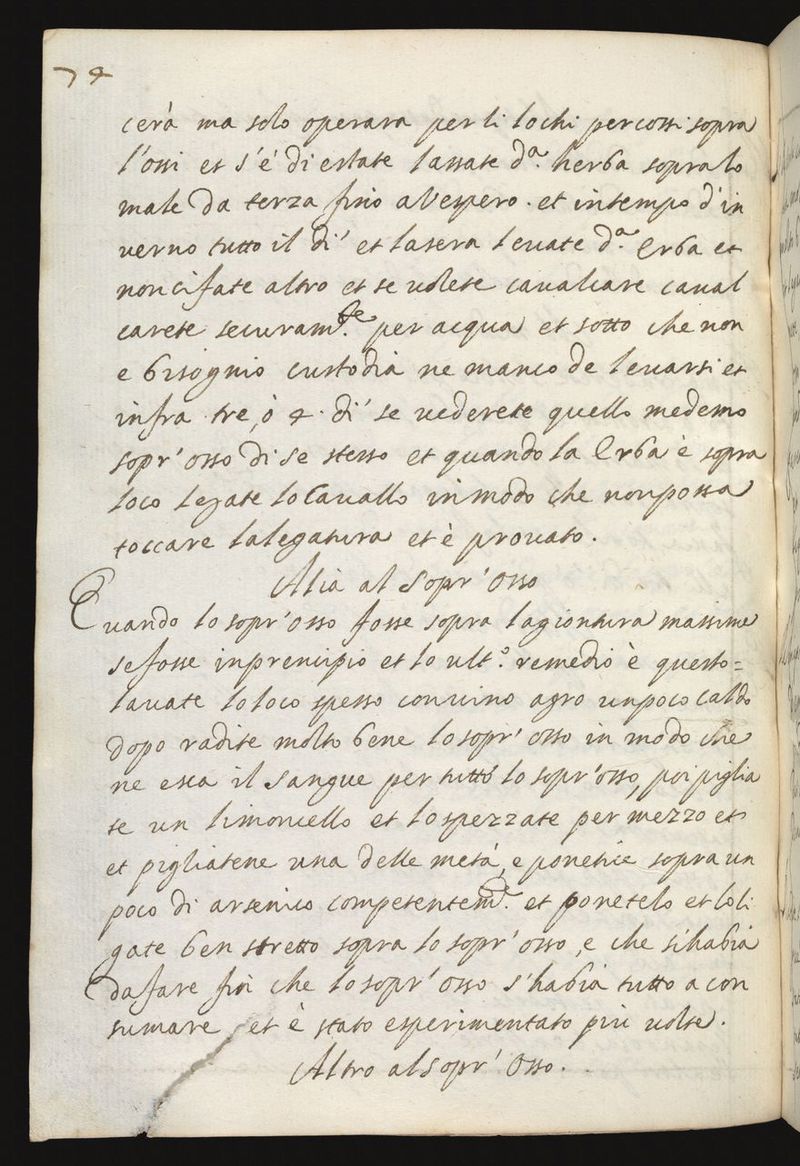 74
cerà ma solo operara per li lochi percossi sopra
l'ossi et s'é di estate lassate d.ª herba sopra lo
male da terza fino a vespero. et in tempo d'in
verno tutto il di' et la sera levate d.ª Erba et
non ci fate altro et se volete cavalcare caval
carete securam.te per acqua et sotto che non
e bisognio custodia ne manco de levarsi et
infra tre, ò 4. di' se vederete quello medemo
sopr'osso di se stesso et quando la Erba è sopra
loco legate lo Cavallo in modo che non possa
toccare la legatura et è provato.
Alia al Sopr'Osso
Quando lo sopr'osso fosse sopra la giontura massime
se fosse in prencipio et lo ult.º remedio è questo=
lavate lo loco spesso con vino agro un poco caldo
dopo radite molto bene lo sopr'osso in modo che
ne esca il sangue per tutto lo sopr'osso, poi piglia
te un limoncello et lo spezzate per mezzo et
et pigliatene una delle metá, e ponetice sopra un
poco di arsenico competentem.te et ponetelo et lo li
gate ben stretto sopra lo sopr'osso, e che si habia
da fare fin che lo sopr'osso s'habia tutto a con
sumare et è stato esperimentato più volte.
Altro al sopr'Osso.